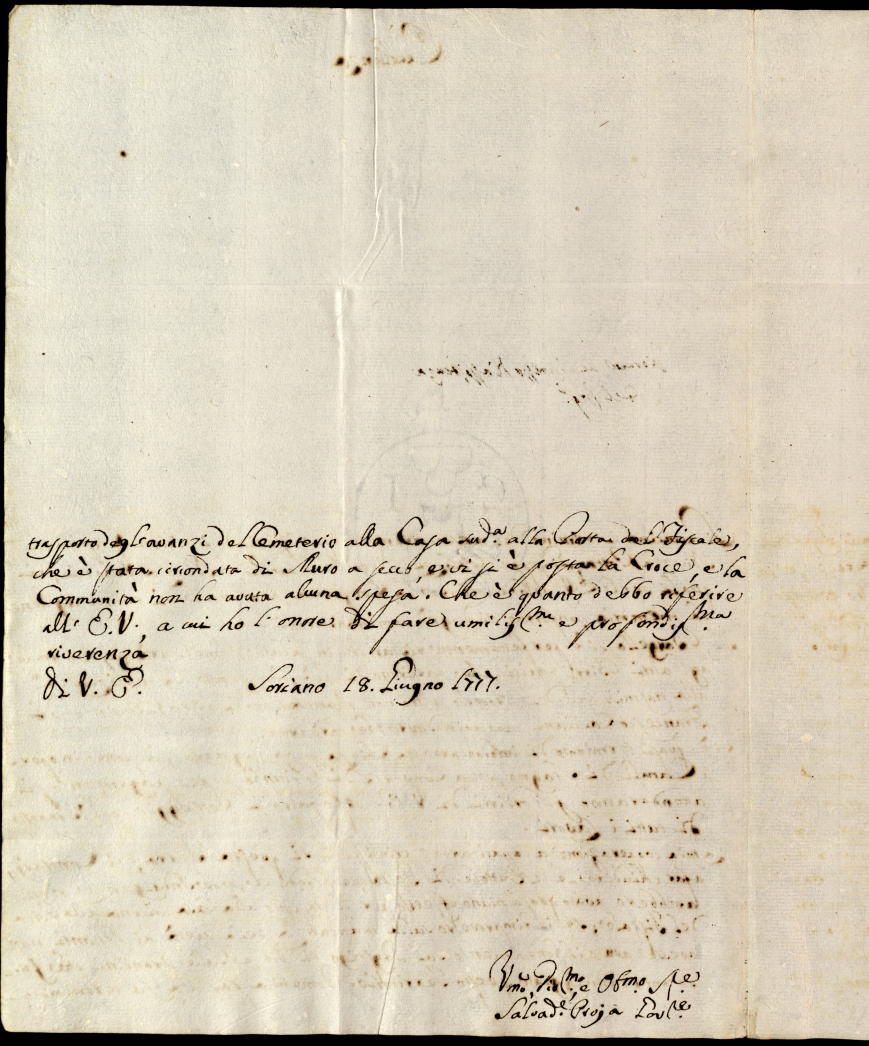 trasporto degl'avanzi del Cemeterio alla Casa sud.ª alla Porta del Fiscale,
che è stata circondata di Muro a secco, e vi si è posta la Croce, e la
Communità non ha avuta alcuna spesa. Che è quanto debbo riferire
all' E. V., a cui ho l'onore di fare umiliss.ma e profondiss.ma
riverenza
Di V. E. Soriano 18. Giugno 1777.
Umo, e Obmo
Salvad.e Gov.re